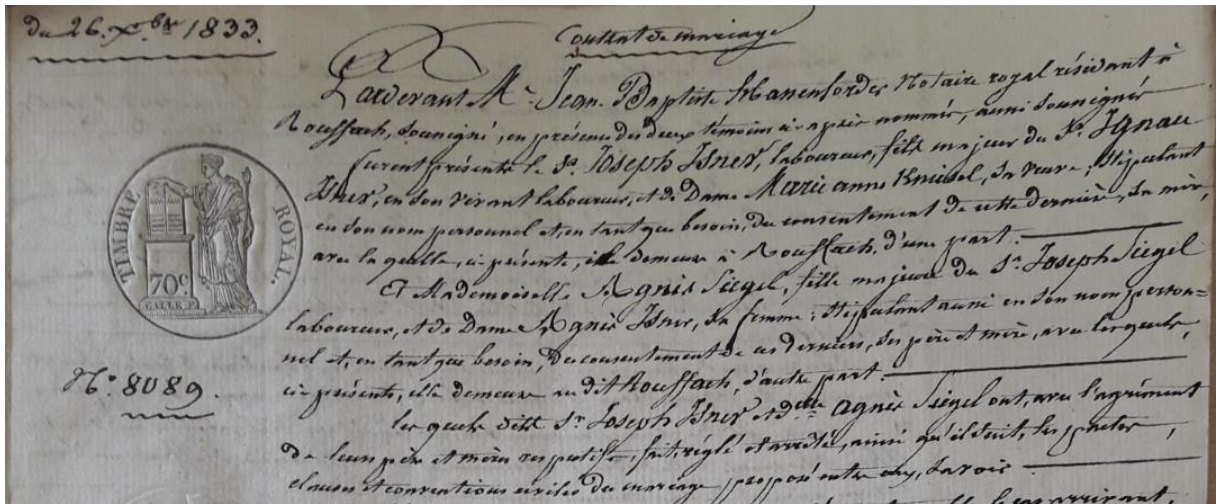 du 26. Xbre 1833.
Contrat de mariage
Pardevant Me Jean Baptiste Notaire royal résidant à
Rouffach, soussigné, en présence des deux témoins ci après nommés, aussi soussignés
furent présents le Sr. Joseph Isner, laboureur, fils majeur du Sr. Ignace
Isner, en son vivant laboureur, et de Dame Marie anne Kniesel, sa veuve; stipulant
en son nom personnel et, en tant que besoin, du consentement de cette dernière, sa mère,
avec laquelle, ci présente, il demeure à Rouffach, d'une part.
Et Mademoiselle Agnès Siegel, fille majeure du Sr. Joseph Siegel
laboureur, et de Dame Agnès Isner, sa femme; stipulant aussi en son nom person=
nel et, en tant que besoin, du consentement de ces derniers, ses père et mère, avec lesquels,
ci présents, elle demeure au dit Rouffach, d'autre part.
les quels dits Sr. Joseph Isner et dlle agnès Siegel ont, avec l'agrément
de leurs père et mères respectifs, fait, réglé et arrêté, ainsi qu'il suit, les pactes,
clauses et conventions civiles du mariage proposé entre eux, savoir
TIMBRE ROYAL.
70c
GALLE F.
No. 8089.